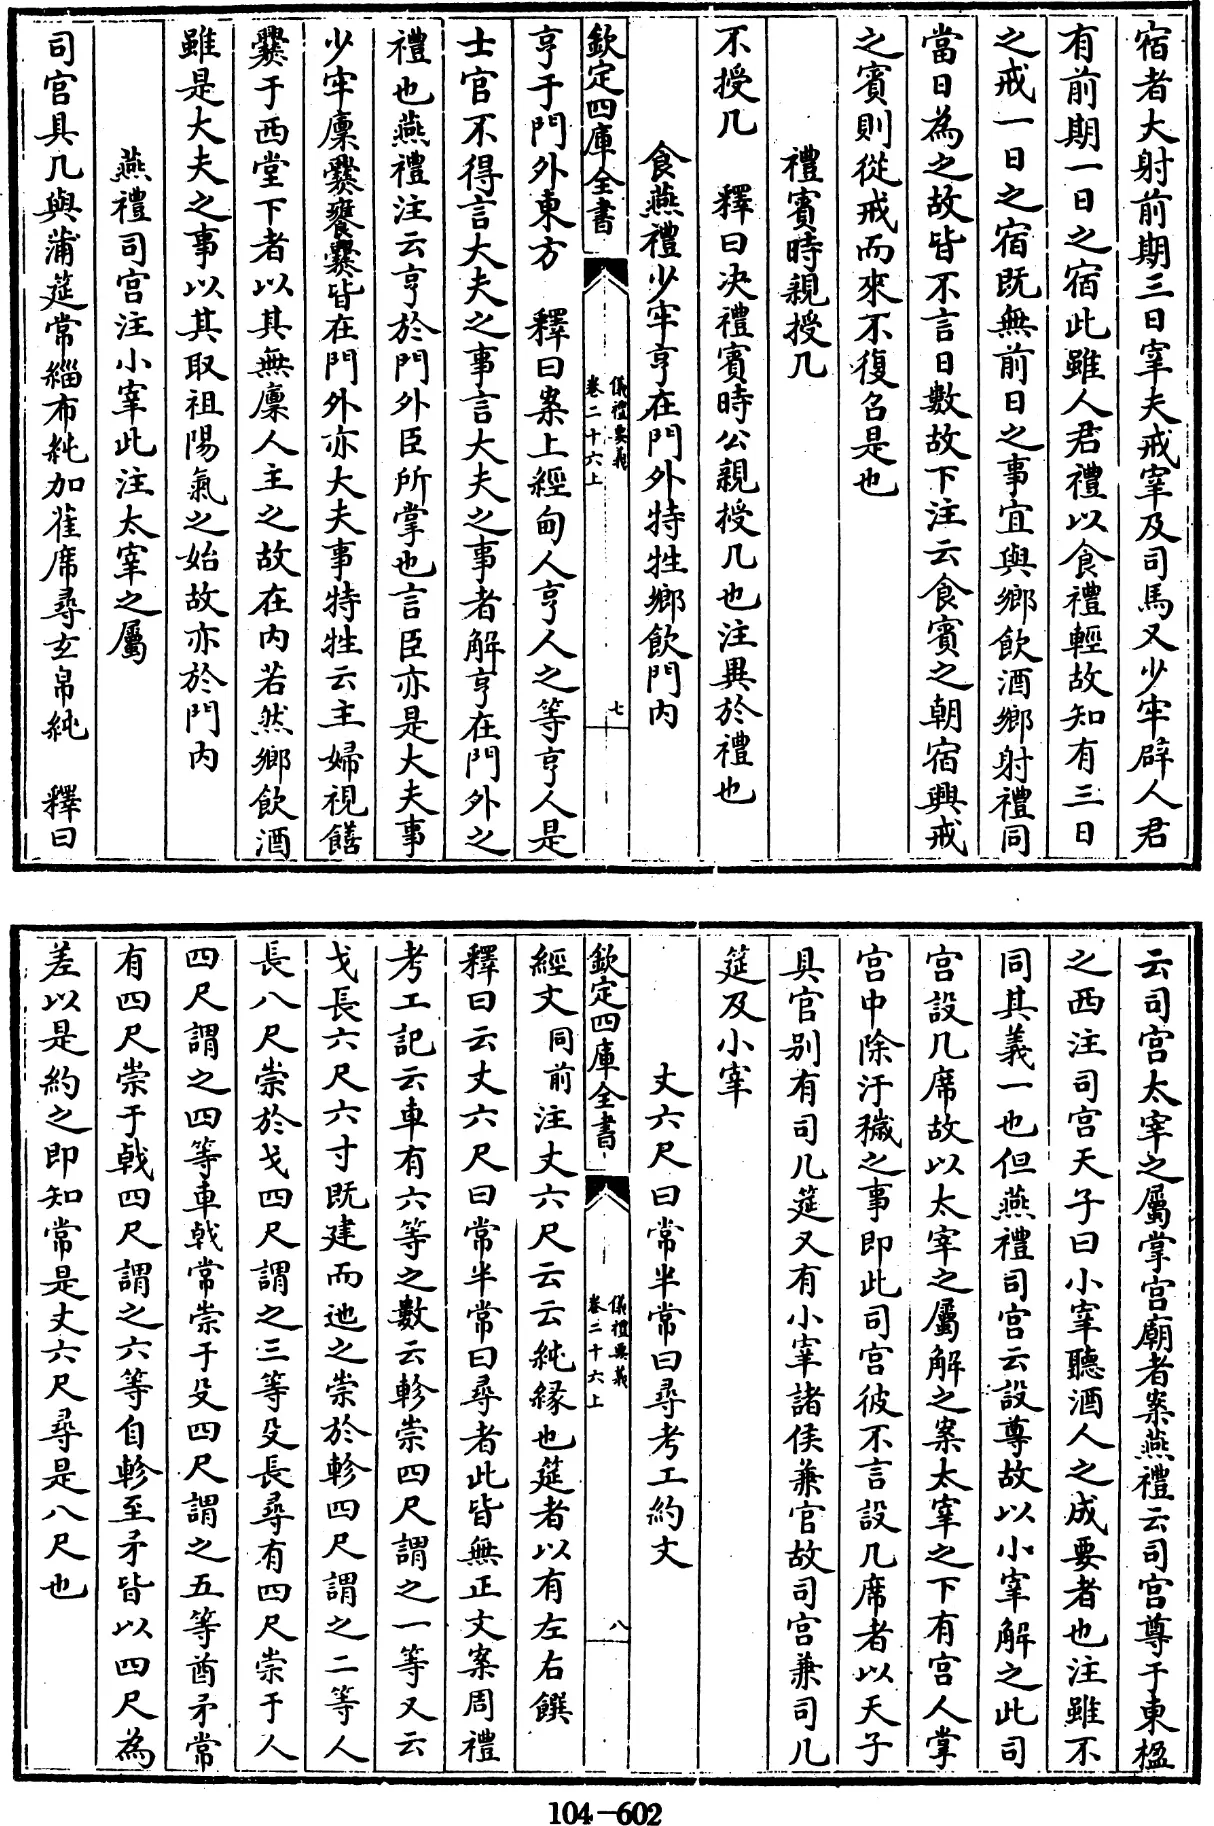 宿者大射前期三日宰夫戒宰及司馬又少牢辟人君
有前期一日之宿此雖人君禮以食禮輕故知有三日
之戒一日之宿既無前日之事宜與鄉飲酒鄉射禮同
當日為之故皆不言日數故下注云食賓之朝宿興戒
之賓則從戒而來不復召是也
禮賓時親授几
不授几 釋曰決禮賓時公親授几也注異於禮也
食燕禮少牢亨在門外特牲鄉飲門內
欽定四庫全書 儀禮要義 卷二十六上 七
亨于門外東方 釋曰案上經甸人亨人之等亨人是
士官不得言大夫之事言大夫之事者解亨在門外之
禮也燕禮注云亨於門外臣所掌也言臣亦是大夫事
少牢廩爨饔爨皆在門外亦大夫事特牲云主婦視饎
爨于西堂下者以其無廩人主之故在內若然鄉飲酒
雖是大夫之事以其取祖陽氣之始故亦於門內
燕禮司宫注小宰此注太宰之屬
司宫具几與蒲筵常緇布純加萑席尋玄帛純 釋曰
云司宫太宰之屬掌宫廟者案燕禮云司宫尊于東楹
之西注司宫天子曰小宰聽酒人之成要者也注雖不
同其義一也但燕禮司宫云設尊故以小宰解之此司
宫設几席故以太宰之屬解之案太宰之下有宫人掌
宫中除汙穢之事即此司宫彼不言設几席者以天子
具官别有司几筵又有小宰諸侯兼官故司宫兼司几
筵及小宰
丈六尺曰常半常曰尋考工約文
欽定四庫全書 儀禮要義 卷二十六上 八
經文同前注丈六尺云云純縁也筵者以有左右饌
釋曰云丈六尺曰常半常曰尋者此皆無正文案周禮
考工記云車有六等之數云軫崇四尺謂之一等又云
戈長六尺六寸既建而迆之崇於軫四尺謂之二等人
長八尺崇於戈四尺謂之三等殳長尋有四尺崇于人
四尺謂之四等車戟常崇于殳四尺謂之五等酋矛常
有四尺崇于戟四尺謂之六等自軫至矛皆以四尺為
差以是約之即知常是丈六尺尋是八尺也
104-602